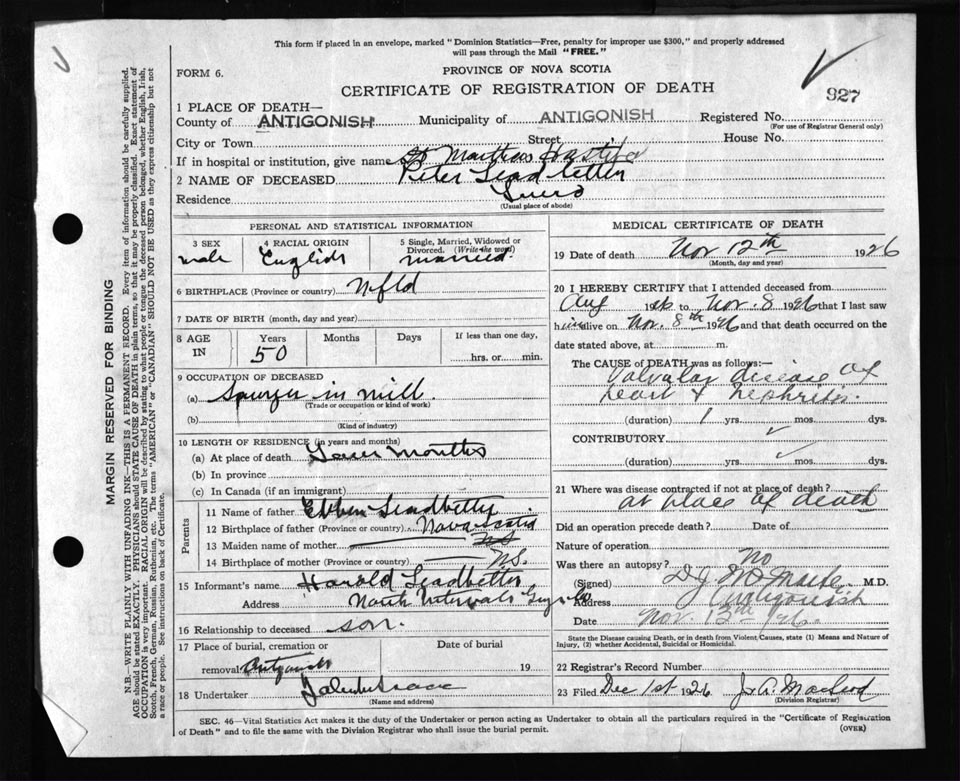 This form if placed in an envelope, marked "Dominion Statistics—Free, penalty for improper use $300," and properly addressed
will pass through the Mail "FREE."
FORM 6.
PROVINCE OF NOVA SCOTIA
CERTIFICATE OF REGISTRATION OF DEATH
927
1 PLACE OF DEATH—
County of ANTIGONISH Municipality of ANTIGONISH Registered No.
(For use of Registrar General only)
City or Town Street House No.
If in hospital or institution, give name St Marthas Hospital
2 NAME OF DECEASED Peter Leadbetter
Residence
(Usual place of abode)
PERSONAL AND STATISTICAL INFORMATION
3 SEX 4 RACIAL ORIGIN 5 Single, Married, Widowed or Divorced. (Write the word)
male English married
6 BIRTHPLACE (Province or country) Nfld
7 DATE OF BIRTH (month, day and year)
8 AGE IN Years Months Days If less than one day,
50 hrs. or min.
9 OCCUPATION OF DECEASED
(a) in mill.
(Trade or occupation or kind of work)
(b)
(Kind of industry)
10 LENGTH OF RESIDENCE (in years and months)
(a) At place of death months
(b) In province
(c) In Canada (if an immigrant)
Parents
11 Name of father Leadbetter
12 Birthplace of father (Province or country) Nova Scotia
13 Maiden name of mother NS
14 Birthplace of mother (Province or country) N.S.
15 Informant's name Harold Leadbetter
Address North Intervale Guysboro
16 Relationship to deceased son.
17 Place of burial, cremation or Date of burial
removal 19
18 Undertaker
(Name and address)
MEDICAL CERTIFICATE OF DEATH
19 Date of death Nov 12th 1926
(Month, day and year)
20 I HEREBY CERTIFY that I attended deceased from
Aug 1926 to Nov. 8 1926 that I last saw
him alive on Nov. 8th 1926 and that death occurred on
date stated above, at m.
The CAUSE of DEATH was as follows:—
Valvular disease of
heart & nephritis.
(duration) 1 yrs. mos. dys.
CONTRIBUTORY
(duration) yrs. mos. dys.
21 Where was disease contracted if not at place of death?
at place of death
Did an operation precede death? Date of
Nature of operation
Was there an autopsy? no
(Signed) M.D.
Address Antigonish
Date Nov. 13th 1926.
State the Disease causing Death, or in death from Violent Causes, state (1) Means and Nature of
Injury, (2) whether Accidental, Suicidal or Homicidal.
22 Registrar's Record Number
23 Filed Dec 1st 1926 J. A. MacLeod
(Division Registrar)
SEC. 46—Vital Statistics Act makes it the duty of the Undertaker or person acting as Undertaker to obtain all the particulars required in the "Certificate of Registration
of Death" and to file the same with the Division Registrar who shall issue the burial permit.
(OVER)
MARGIN RESERVED FOR BINDING
N.B.—WRITE PLAINLY WITH UNFADING INK—THIS IS A PERMANENT RECORD. Every item of information should be carefully supplied.
AGE should be stated EXACTLY. PHYSICIANS should STATE CAUSE OF DEATH in plain terms, so that it may be properly classified. Exact statement of
OCCUPATION is very important. RACIAL ORIGIN will be described by stating to what people or tongue the deceased person belonged, whether English, Irish,
Scotch, French, German, Russian, Ruthenian, etc. The terms "AMERICAN" or "CANADIAN" SHOULD NOT BE USED as they express citizenship but not
a race or people. See instructions on back of Certificate.